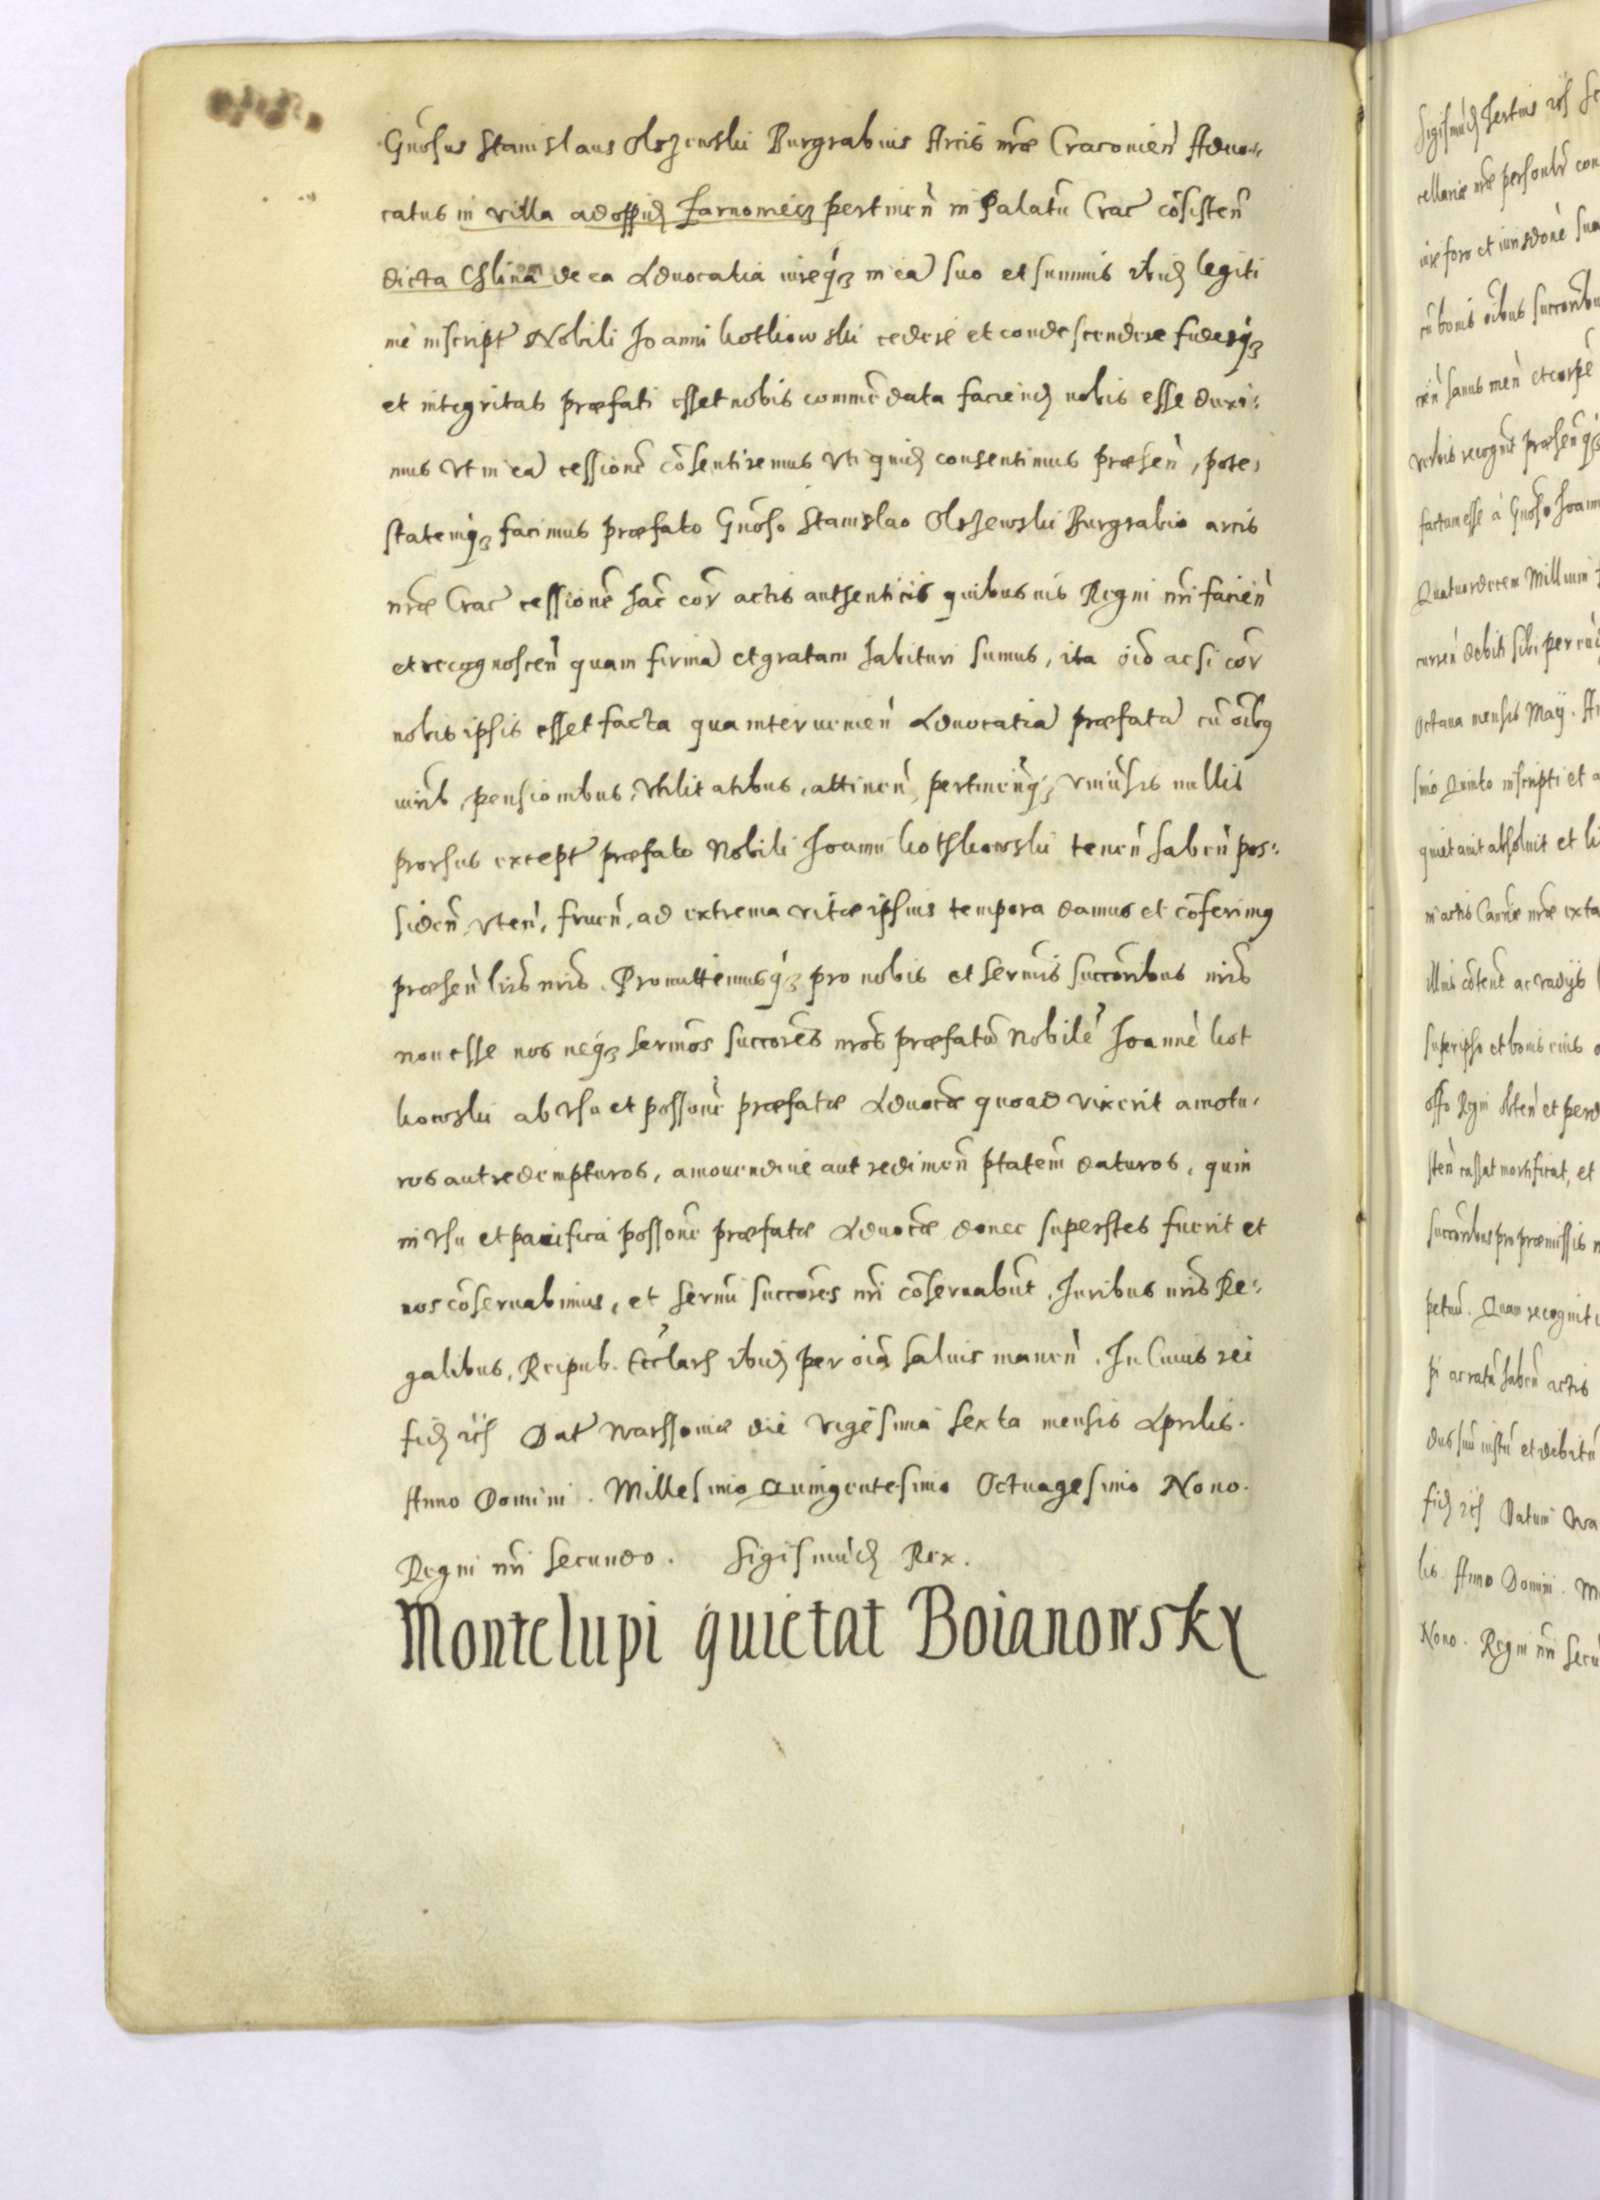 Gnosus Stanislaus Olszewski Burgrabius Arcis nrae Cracouien Aduo-
catus in villa ad oppid Zarnowiecz pertinen in Palatu Crac cosisten
dicta Chlina de ea Aduocatia iureq3 in ea suo et summis ibid legiti
me inscript Nobili Joanni Kotkowski cedere et condescendere fidesq3
et integritas praefati esset nobis commedata faciend nobis esse duxi-
mus vt in ea cessione cosentiremus vti quid consentimus praesen, pote-
statemq3 facimus praefato Gnoso Stanislao Olszewski Burgrabio arcis
nrae Crac cessione hac cor actis authenticis quibusuis Regni nri facien
et recognoscen quam firma et gratam habituri sumus, ita oio ac si cor
nobis ipsis esset facta qua interuenien Aduocatia praefata cu oibus
iurib, pensionibus, vtilitatibus, attinen, pertinenq3 vniuersis nullis
prorsus except praefato Nobili Joanni Kothkowski tenen haben pos-
siden, vten, fruen, ad extrema vitae ipsius tempora damus et coferimus
praesen lris nris. Promittimusq3 pro nobis et sermis succoribus nris
non esse nos neq3 sermos succores nros praefatu Nobile Joanne Kot
kowski ab vsu et possone praefatae Aduocae quoad vixerit amotu-
ros aut redempturos, amouendiue aut redimen ptatem daturos, quin
in vsu et pacifica possone praefatae Aduocae donec superstes fuerit et
nos coseruabimus, et sermi succores nri coseruabunt. Juribus nris Re-
galibus, Reipub. Ecclarh ibid per oia saluis manen. In Cuius rei
fid rch Dat Warssouiae die vigesima sexta mensis Aprilis.
Anno Domini. Millesimo Quingentesimo Octuagesimo Nono.
Regni nri secundo. Sigismud Rex.
Montelupi quietat Boianowsky
Sigismud Tertius rch
cellariae nrae personlr
iure foro et iurisdone sua
cu bonis oibus succoribu
sanus men et corpe
recognit praesenq3
factum esse à Gnoso Joann
Quatuordecem Millium
debiti sibi per
octaua mensis Maÿ.
simo Quinto inscripti et a
quietauit absoluit et li
in actis Canriae nrae exta
illius coten ac vadijs
super ipso et bonis eius
offo Regni obten et
sten cassat mortificat, et
succoribus pro praemissis
petuu. Quam recognit
pi ac ratu haben actis
suu iustu et debitu
fid rch Datum Wa
lis. Anno Domini. M
Nono. Regni nri secu